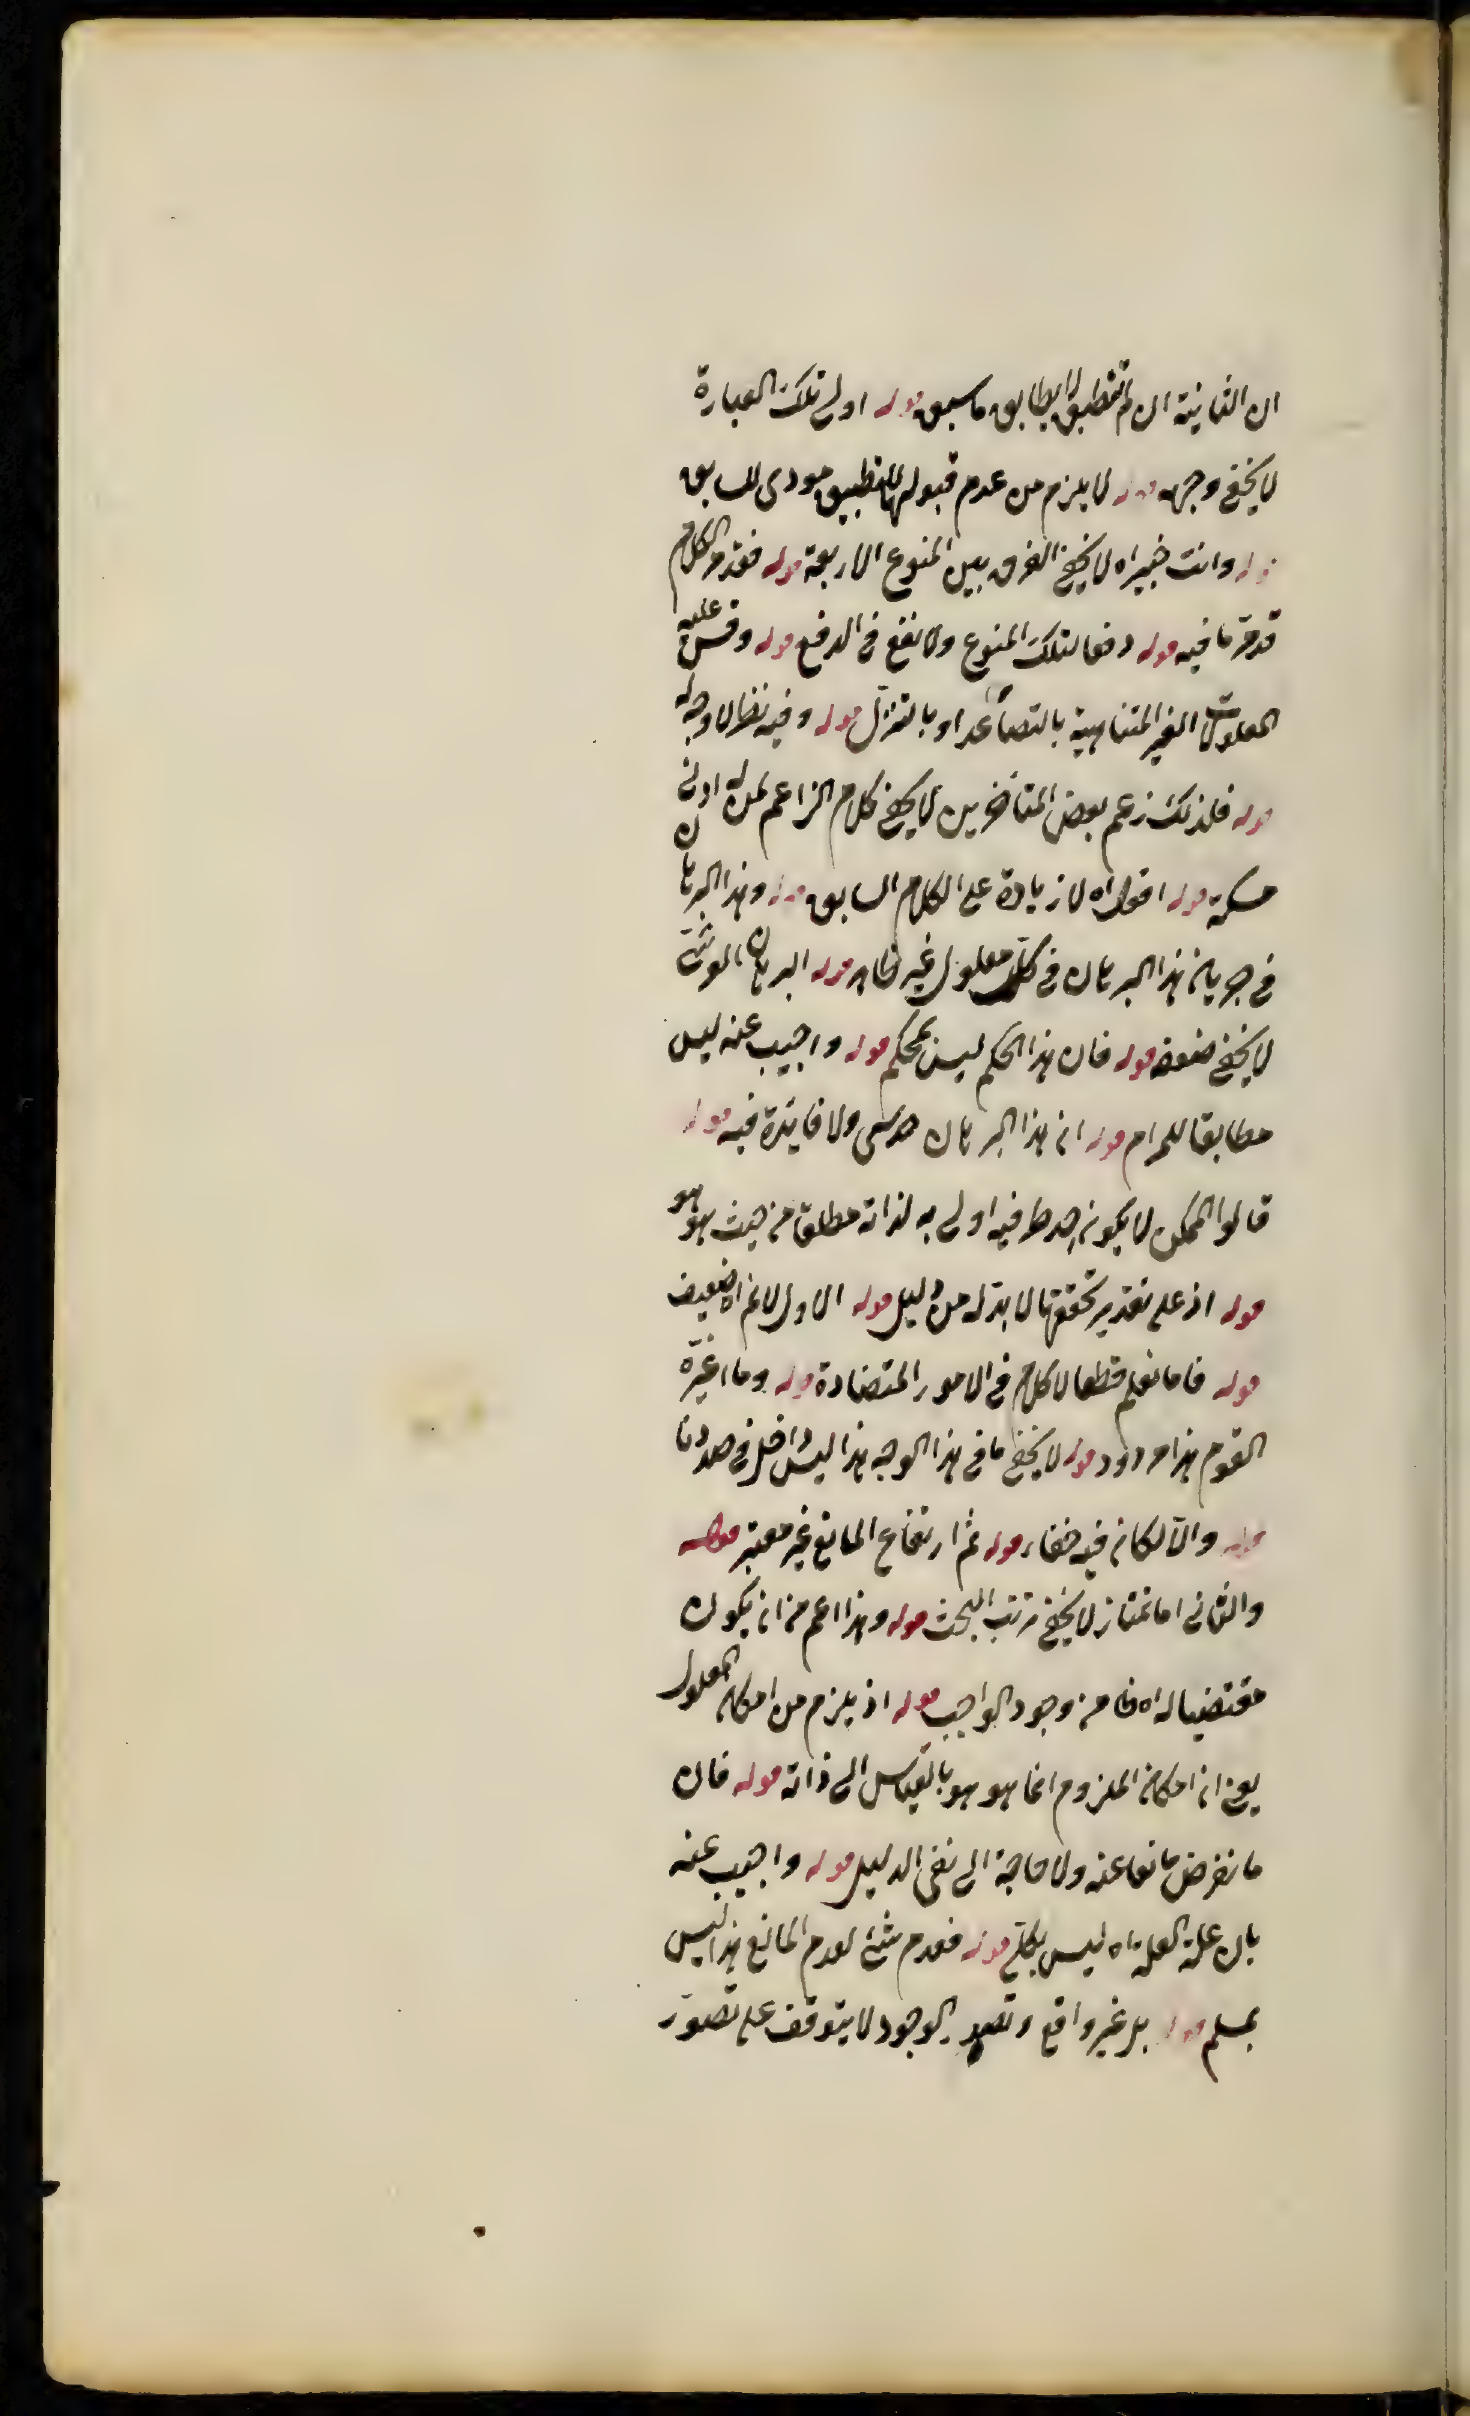 ان الثانية ان لم تنطبق لا يطابق ما سبق قوله اولى تلك العبارة
لا يخفى وجهه قوله لا يلزم من عدم قبولها للتطبيق مودى السابق
قوله وانت خبير اه لا يخفى الفرق بين المنوع الاربعة قوله فقد مر الكلام
قد مر ما فيه قوله دفعا لتلك المنوع ولا نفع فى الدفع قوله وقس عليه
المعلولات الغير المتناهية بالتصاعد او بالتنزل قوله وفيه نظر لا وجه له
قوله فلذلك زعم بعض المتاخرين لا يخفى كلام الزاعم لمن له ادنى
مسكة قوله اقول اه لا زيادة على الكلام السابق قوله وهذا البرهان
فى جريان هذا البرهان فى كل معلول غير ظاهر قوله البرهان الموثق
لا يخفى ضعفه قوله فان هذا الحكم ليس بمحكم قوله واجيب عنه ليس
مطابقا للمرام قوله ان هذا البرهان حدسى ولا فايدة فيه قوله
قالوا الممكن لا يكون احد طرفيه اولى به لذاته مطلقا من حيث هو هو
قوله اذ على تقدير تحققها لا بد له من دليل قوله الاول لا نم اه ضعيف
قوله فاما نعلم قطعا لا كلام فى الامور المتضادة قوله وما اغتره
القوم هذا مردود قوله لا يخفى ما فى هذا الوجه هذا ليس داخل فى صددنا
قوله والا لكان فيه خفاء قوله ثم ارتفاع المانع غير معتبر قوله
والثانى اما ممتاز لا يخفى ترتب البحث قوله وهذا اعم من ان يكون
مقتضيا له اه فا من وجود الواجب قوله اذ يلزم من امكان المعلول
يعنى ان امكان الملزوم انما هو هو بالقياس الى ذاته قوله فان
ما نفرض مانعا عنه ولا حاجة الى نفى الدليل قوله واجيب عنه
بان علة العلة اه ليس بكلى قوله فعدم شئ لعدم المانع هذا ليس
بمسلم قوله بل غير واقع وتصور الوجود لا يتوقف على تصور